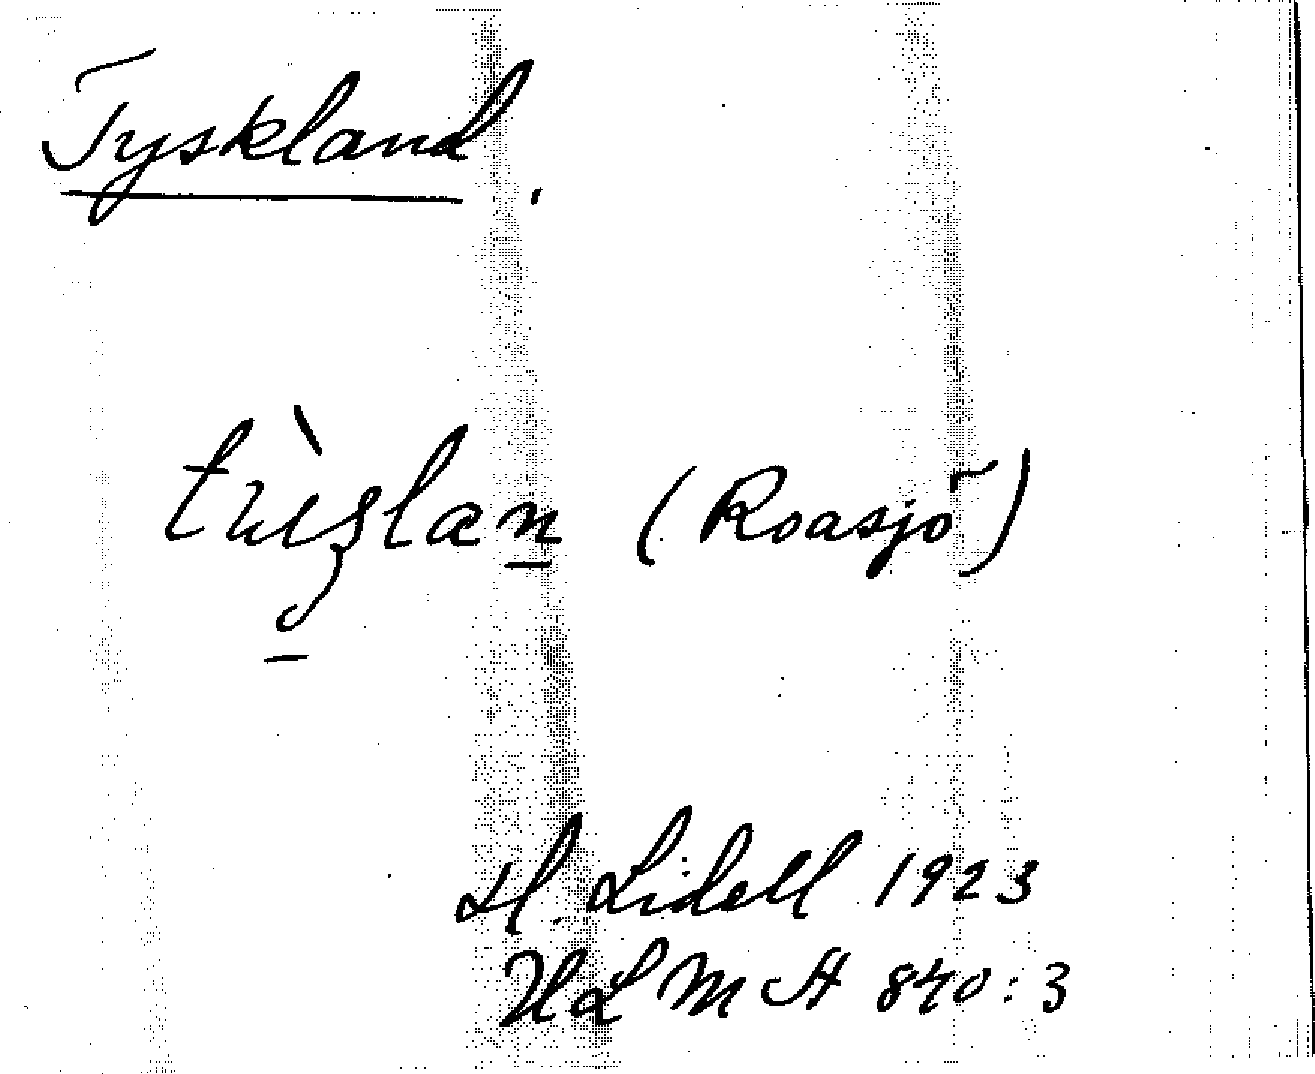 Tyskland.
(Roasjö)
H. Lidell 1923
ULMA 840:3